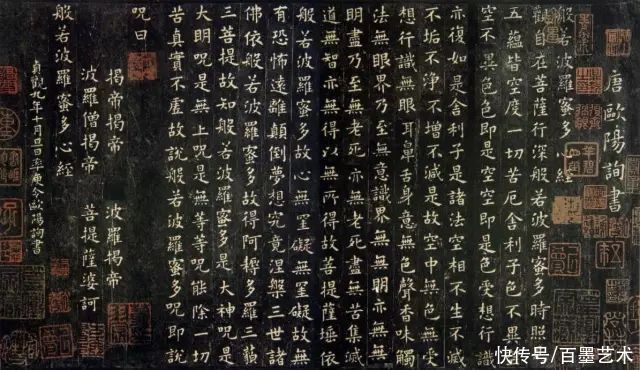 唐歐陽詢書
般若波羅蜜多心經
觀自在菩薩行深般若波羅蜜多時照
五蘊皆空度一切苦厄舍利子色不異
空不異色色即是空空即是色受想行識
亦復如是舍利子是諸法空相不生不滅
不垢不淨不增不減是故空中無色無受
想行識無眼耳鼻舌身意無色聲香味觸
法無眼界乃至無意識界無無明亦無無
明盡乃至無老死亦無老死盡無苦集滅
道無智亦無得以無所得故菩提薩埵依
般若波羅蜜多故心無罣礙無罣礙故無
有恐怖遠離顛倒夢想究竟涅槃三世諸
佛依般若波羅蜜多故得阿耨多羅三藐
三菩提故知般若波羅蜜多是大神呪是
大明呪是無上呪是無等等呪能除一切
苦真實不虛故說般若波羅蜜多呪即說
呪曰
揭帝揭帝 波羅揭帝
波羅僧揭帝 菩提薩婆訶
般若波羅蜜多心經
貞觀九年十月旦日率更令歐陽詢書
快传号/百墨艺术